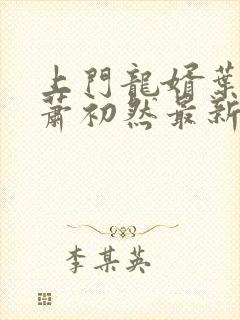 上門龍婿葉
蕭初然最新
李某英